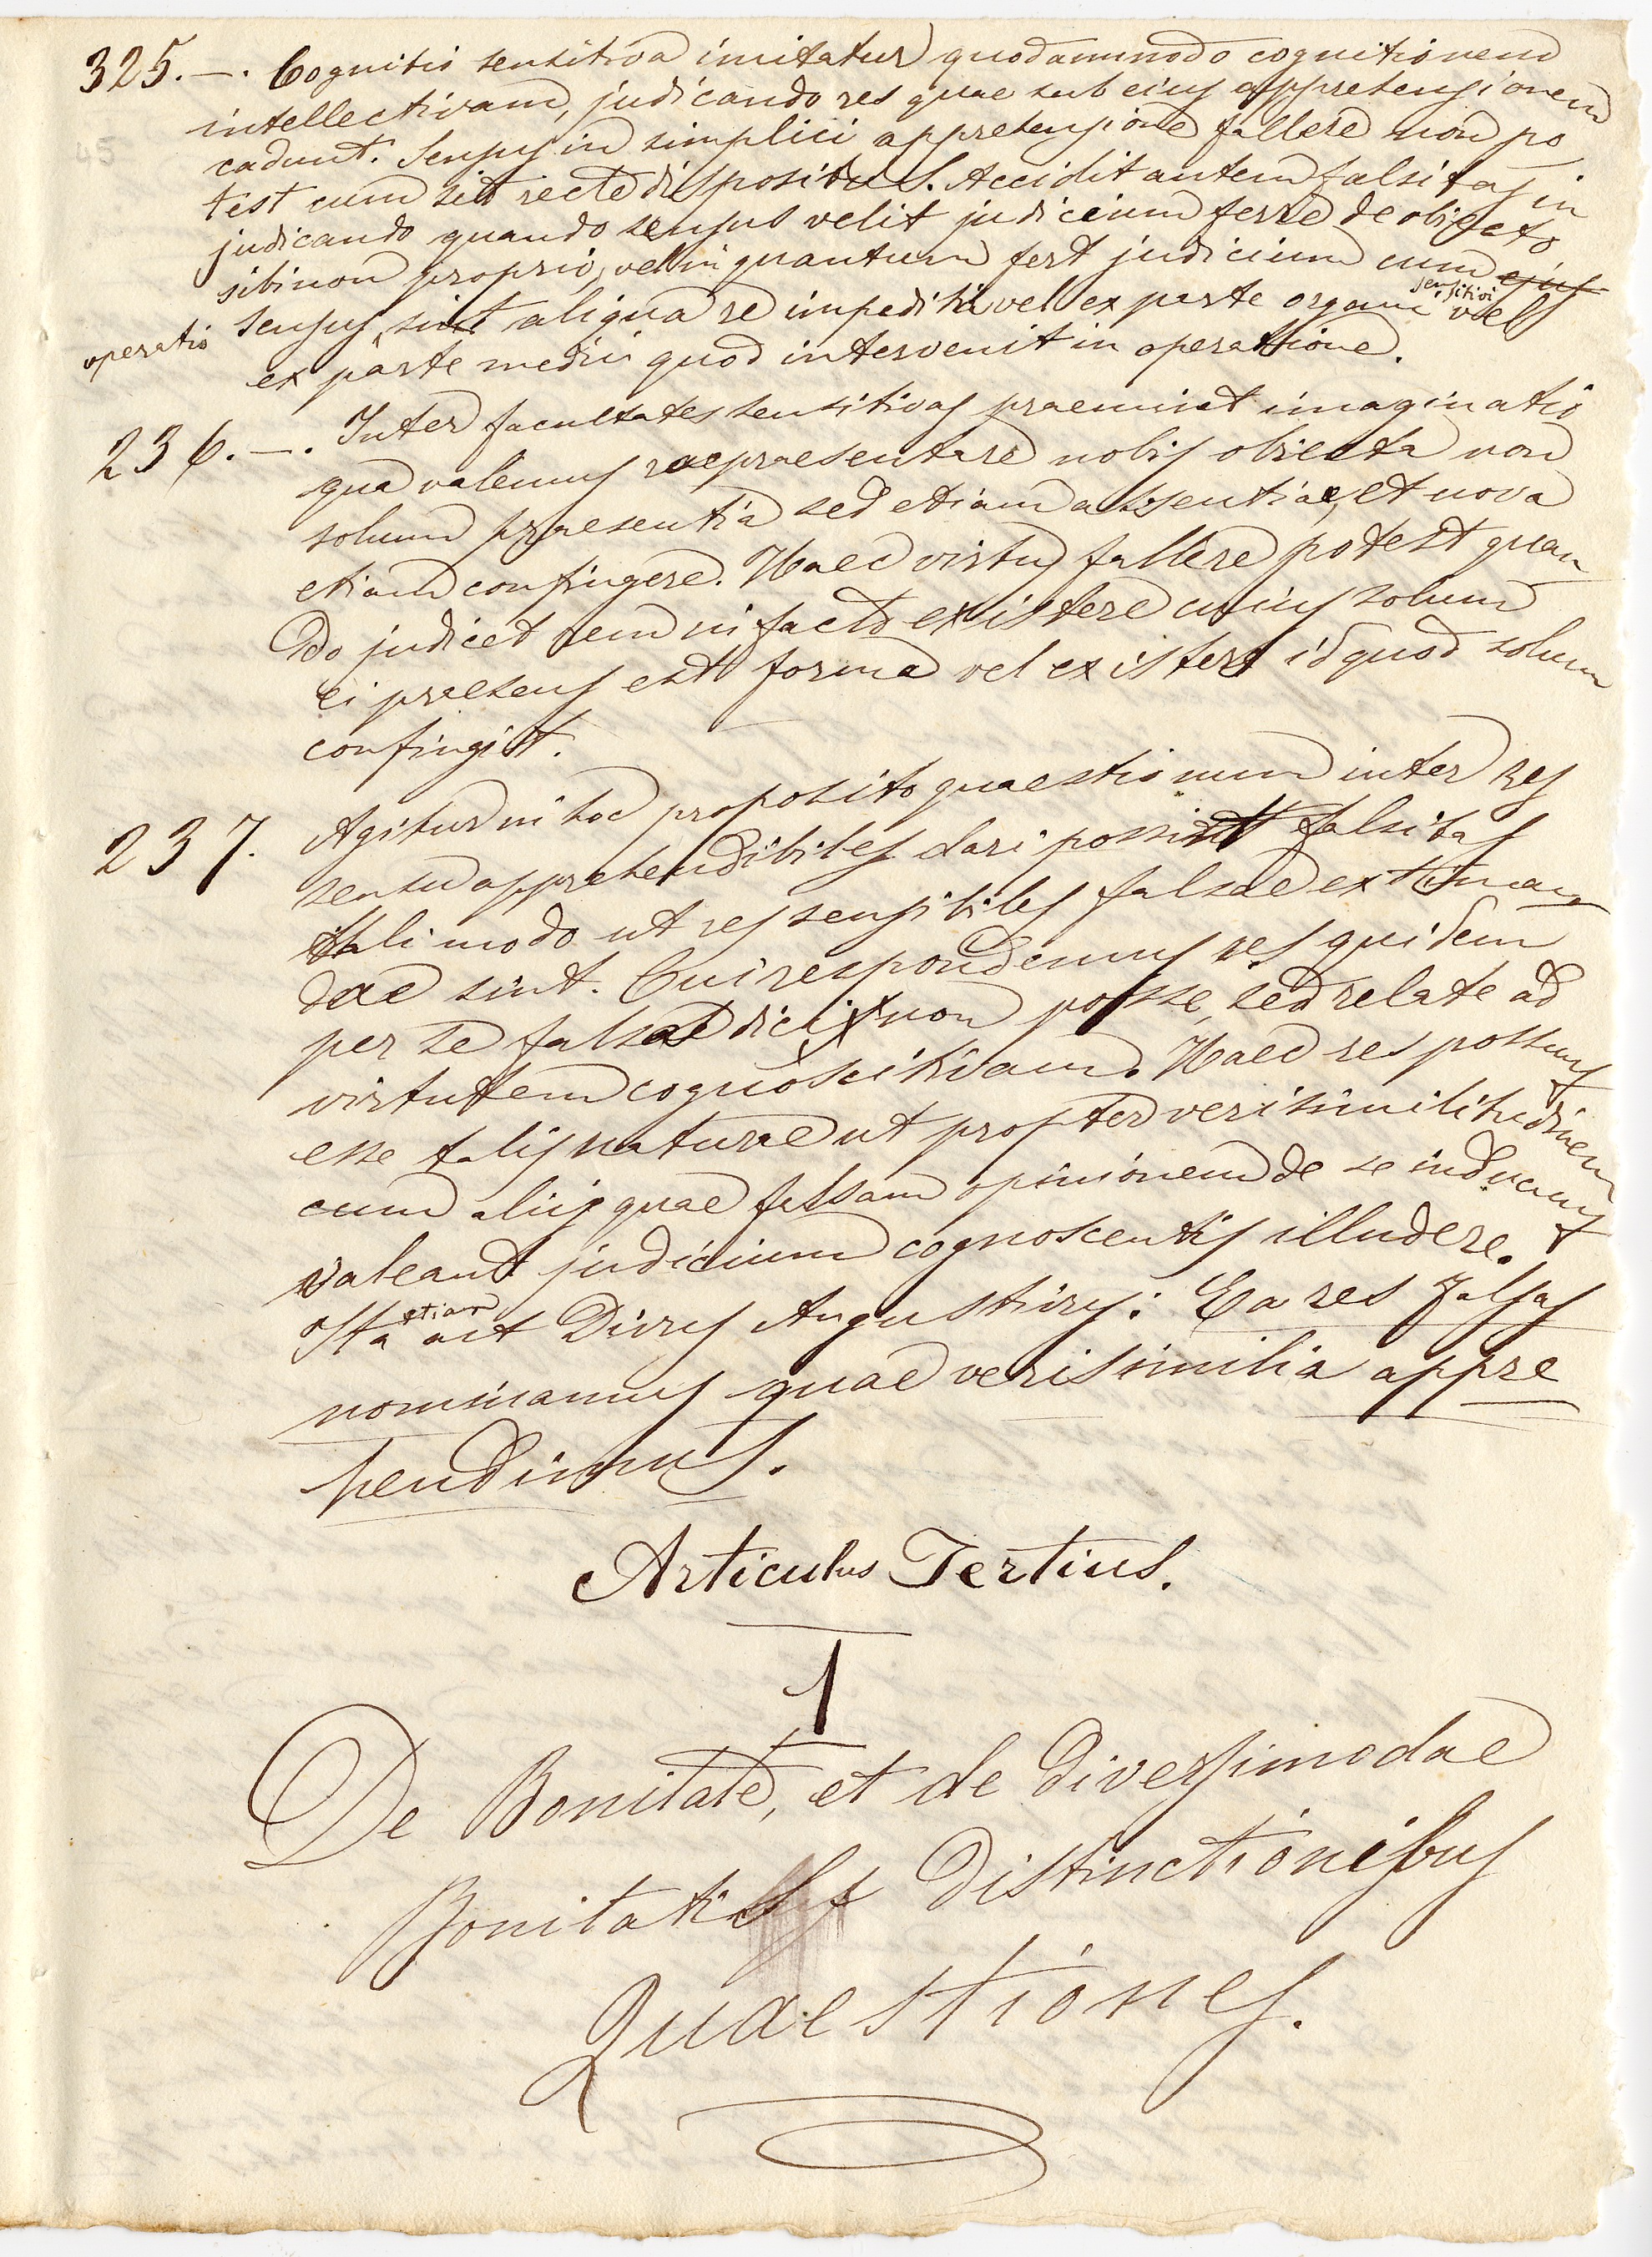 325.—. Cognitio sensitiva imitatur quodammodo cognitionem
intellectivam, judicando res quae sub eius appretensionem
cadunt. Sensus in simplici appretensione fallere non po
test cum sit recte dispositus. Accidit autem falsitas in
judicando quando sensus velit judicium ferre de obiecto
sibi non proprio, vel in quantum fert judicium cum ejus
sensitivi
operatio sensus sint aliqua re impediti vel ex parte organi vel
ex parte medii quod intervenit in operatione.
236.—. Inter facultates sensitivas praeminet imaginatio
qua valemus raepraesentare nobis obiecta non
solum praesentia sed etiam absentiae, et nova
etiam confingere. Haec virtus fallere potest quan
do judicet rem in facto existere cuius solum
ei praesens est forma vel existere id quod solum
confingit.
237. Agitur in hoc proposito quaestionum inter res
sensu appretendibiles dari possint falsitas
tali modo ut res sensibiles falsae extiman
dae sint. Cui respondemus res quidem
per se falsae dici non posse, sed relate ad
virtutem cognoscitivam. Haec res possunt
esse talis naturae ut propter verisimilitudinem
cum aliis quae falsam opinionem de se inducunt
valeant judicium cognoscentis illudere.
etiam
Ita ait Divus Augustinus: Ea res falsas
nominamus quae verisimilia appre
hendimus.
Articulus Tertius.
1
De Bonitate, et de diversimodae
Bonitatis distinctionibus
Quaestiones.